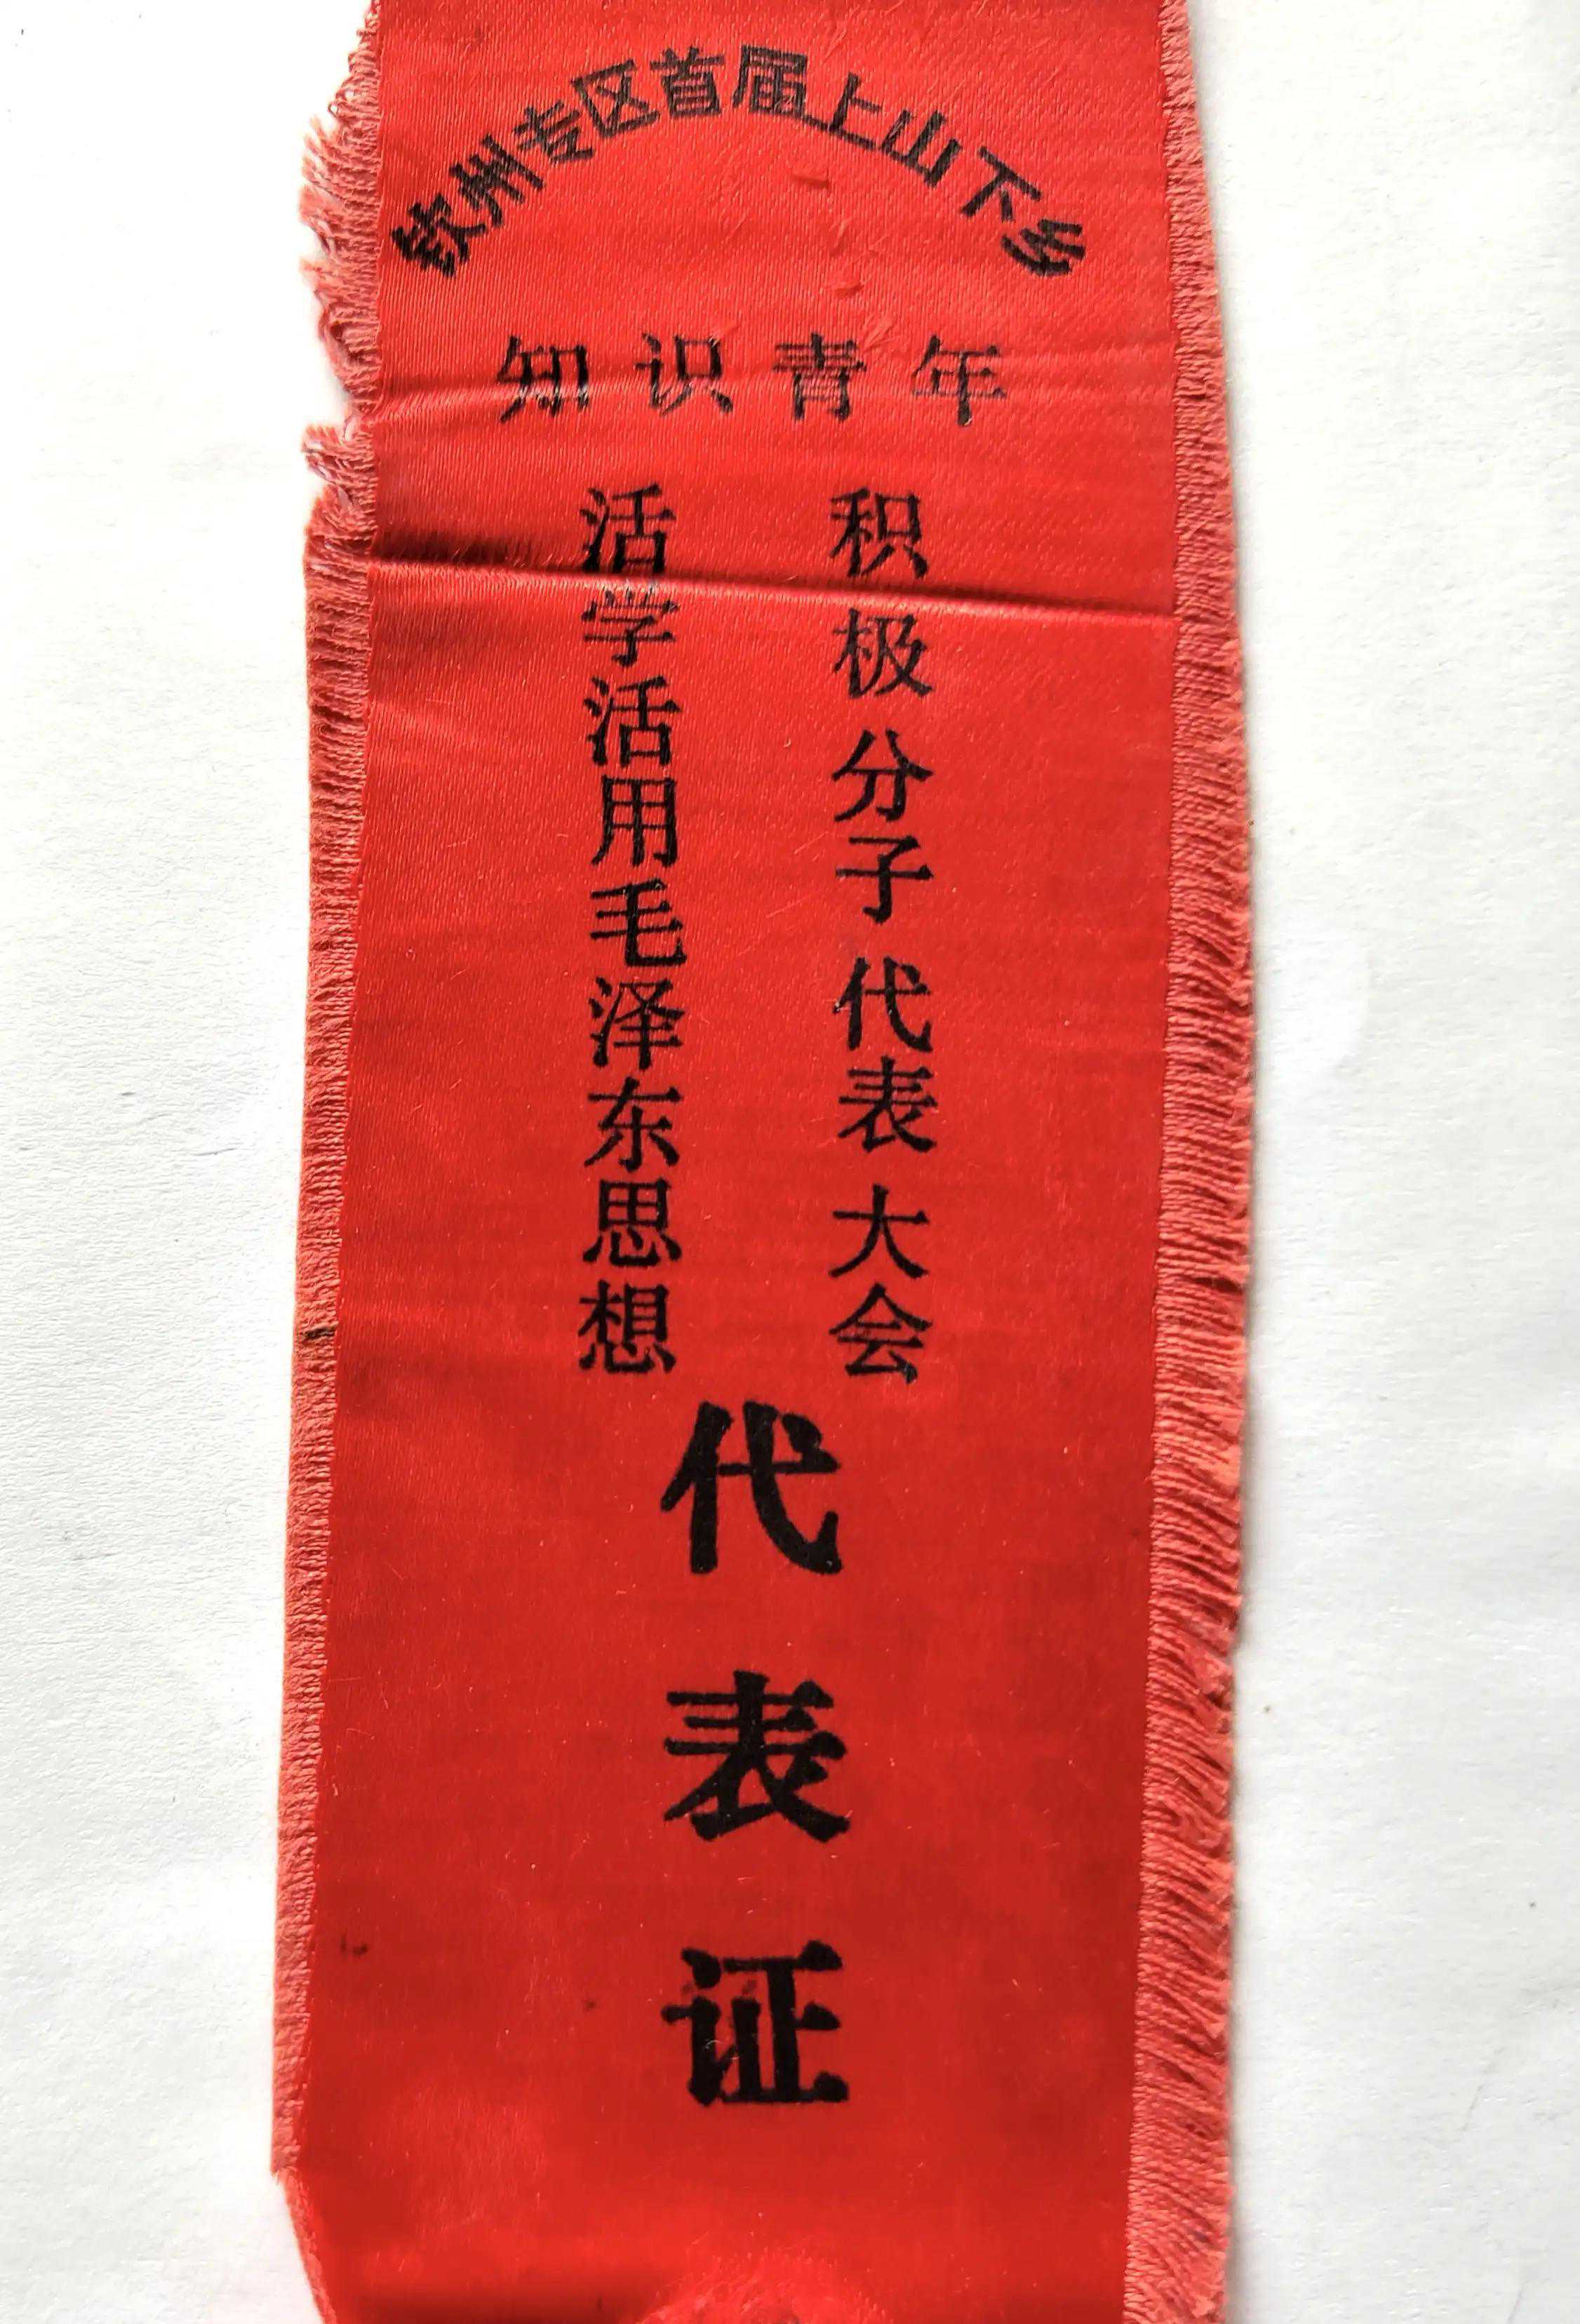 钦州专区首届上山下乡
知识青年
活学活用毛泽东思想
积极分子代表大会
代表证